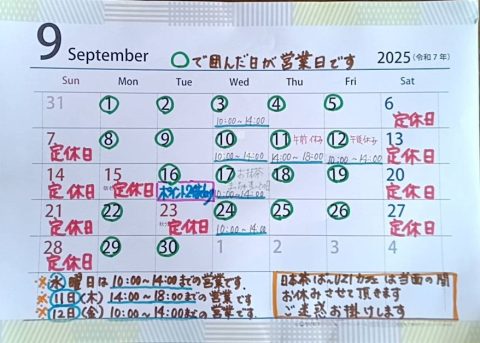 9 September ○で囲んだ日が営業日です 2025(令和7年)
Sun Mon Tue Wed Thu Fri Sat
31 1 2 3 4 5 6
10:00~14:00 定休日
7 8 9 10 11 午前休み 12 午後休み 13
定休日 10:00~14:00 14:00~18:00 10:00~14:00 定休日
14 15 16 17 18 19 20
定休日 定休日 ポイント2倍day 10:00~14:00 定休日
21 22 23 24 25 26 27
定休日 定休日 10:00~14:00 定休日
28 29 30 1 2 3 4
定休日
※水曜日は10:00~14:00までの営業です
※11日(木)14:00~18:00までの営業です
※12日(金)10:00~14:00までの営業です
カフェは当面の間
お休みさせて頂きます
ご迷惑お掛けします